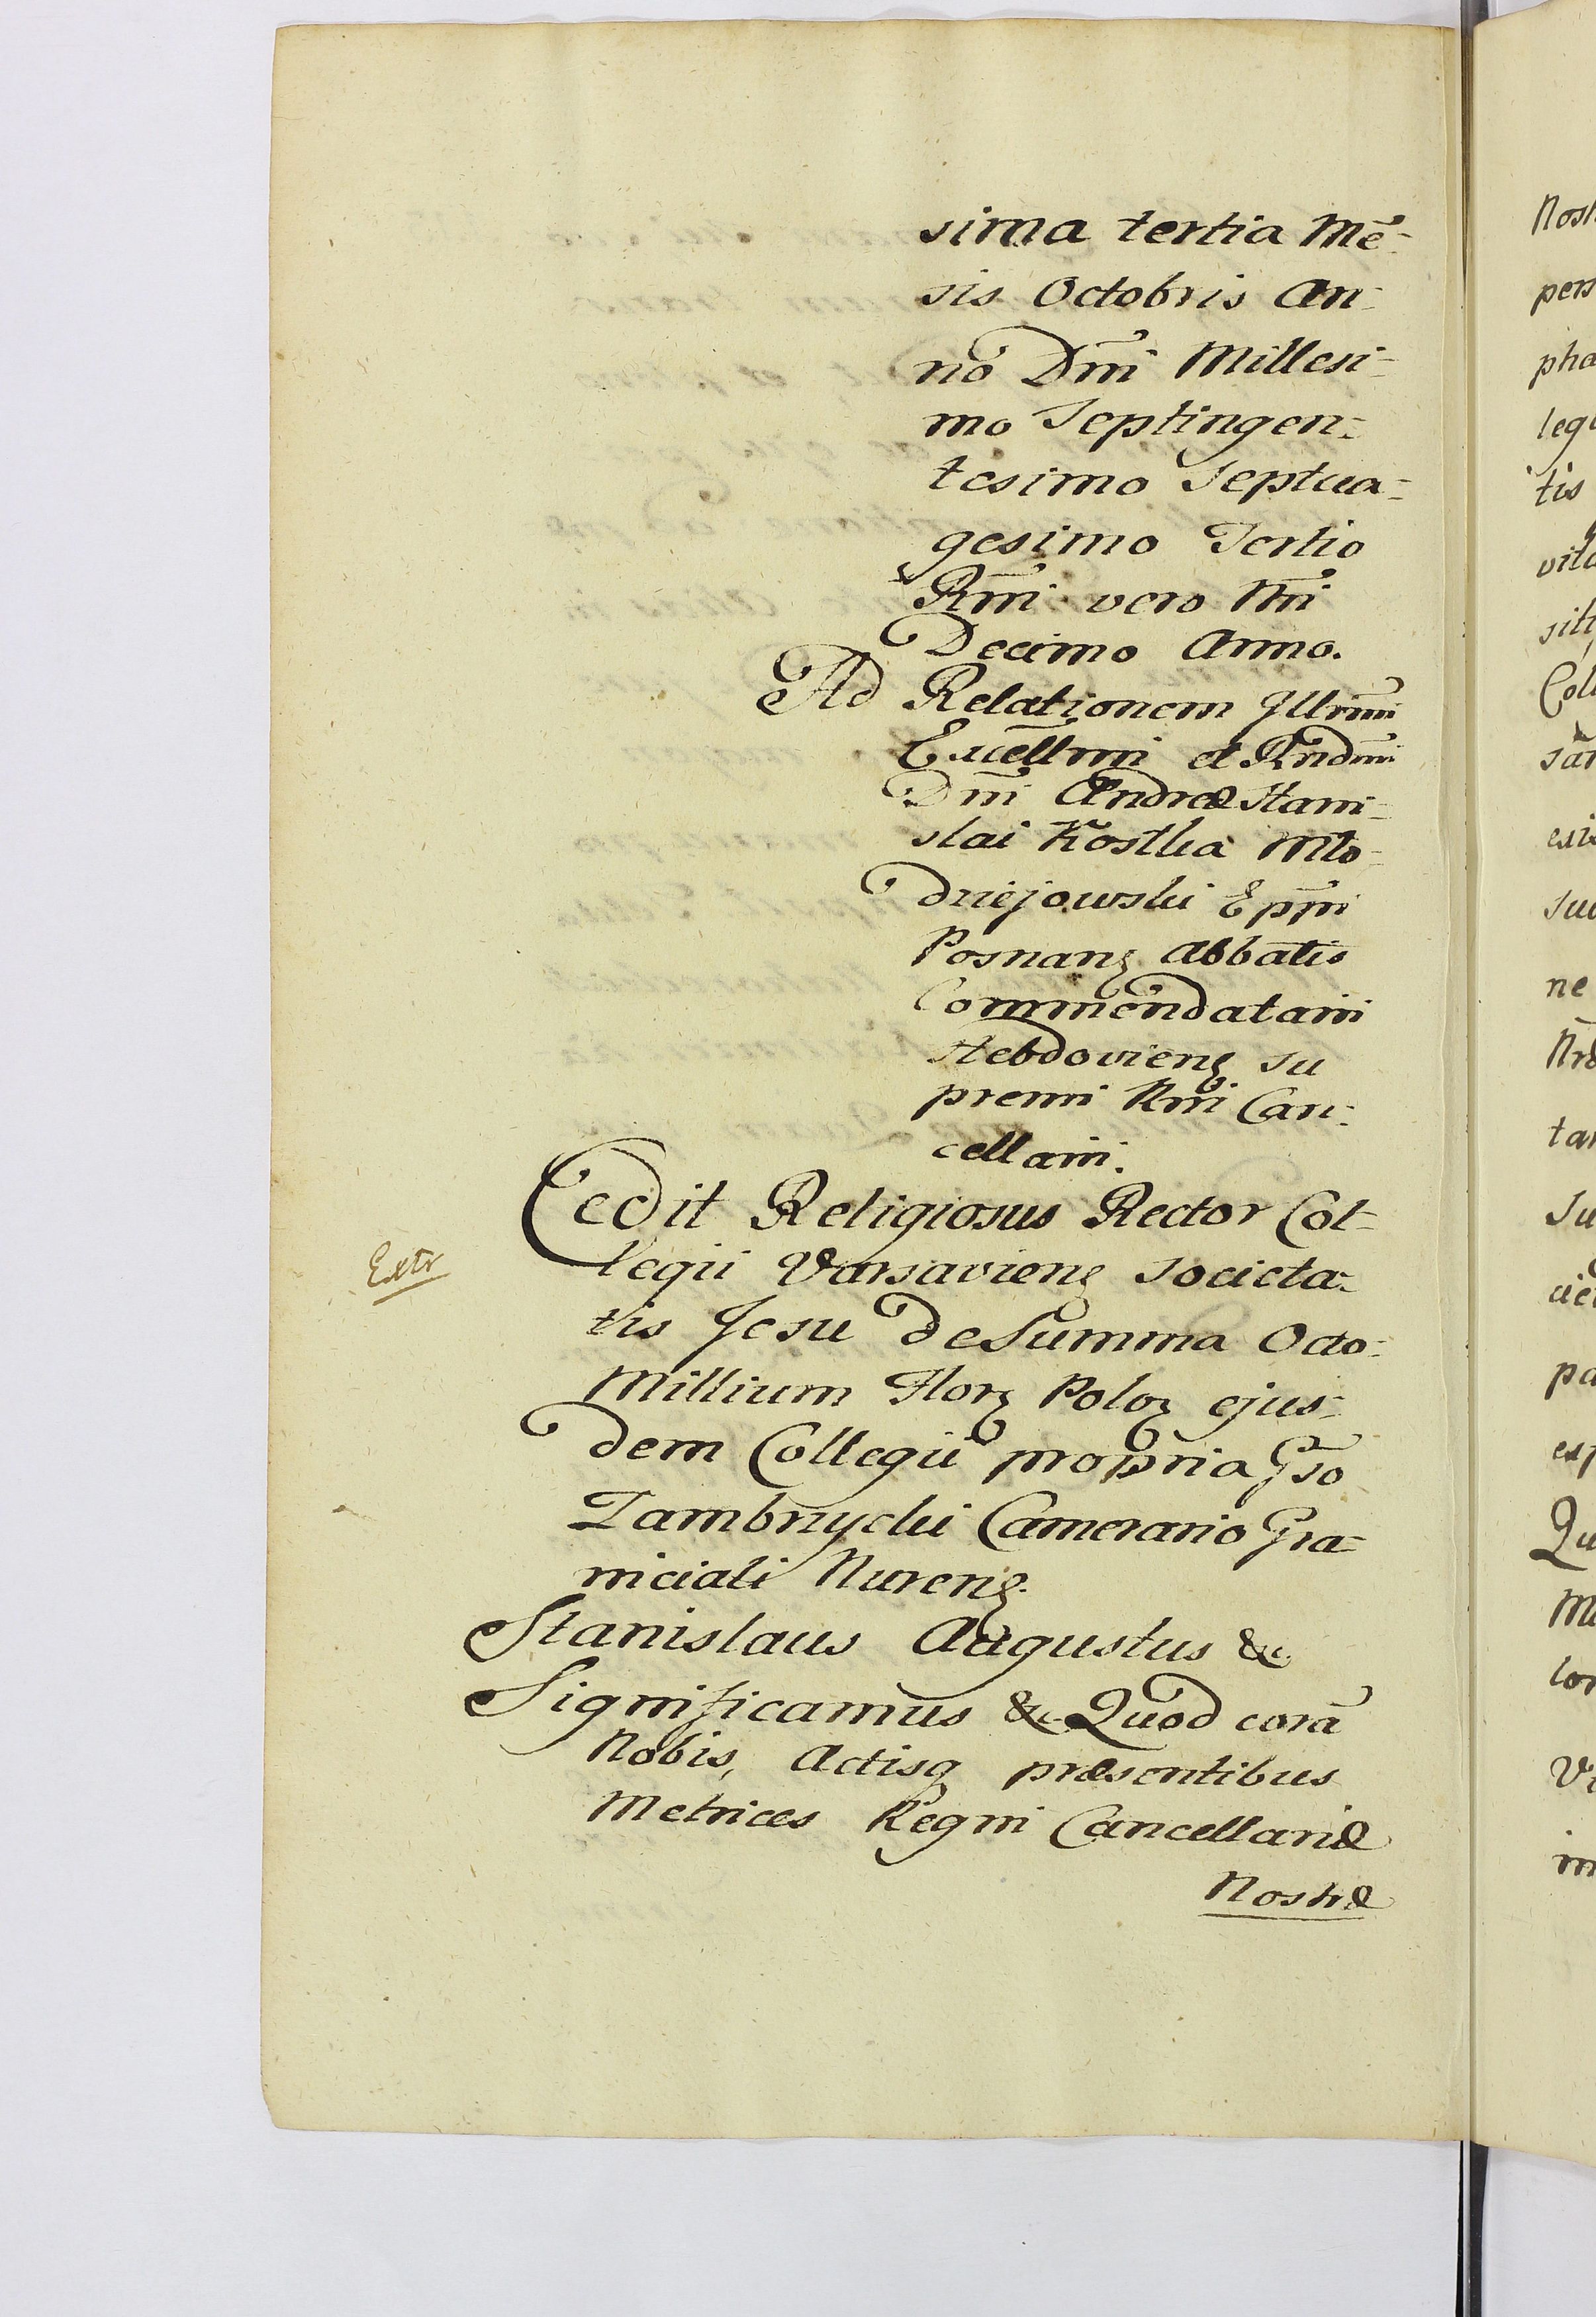 sima tertia Mē-
sis Octobris An-
no Dn̄i Millesi-
mo Septingen-
tesimo Septua-
gesimo Tertio
Rn̄i vero Nr̄i
Decimo Anno.
Ad Relationem Jllrm̄i
Excellm̄i et Rndm̄i
Dn̄i Andreæ Stani-
slai Kostka Mło-
dziejowski Epp̄i
Posnanꝫ Abbatis
Commendatarii
Hebdovienꝫ Su
premi Rn̄i Can-
cellarii.
Cedit Religiosus Rector Col-
legii Varsavienꝫ Societa-
tis Jesu de Summa Octo-
Millium Florꝫ Poloꝫ ejus-
dem Collegii propria Gso
Zambrzycki Camerario Gra-
niciali Nurenꝫ.
Stanislaus Augustus &c.
Significamus &c. Quod corā
Nobis, Actisq præsentibus
Metrices Regni Cancellariæ
Nostræ
Extr